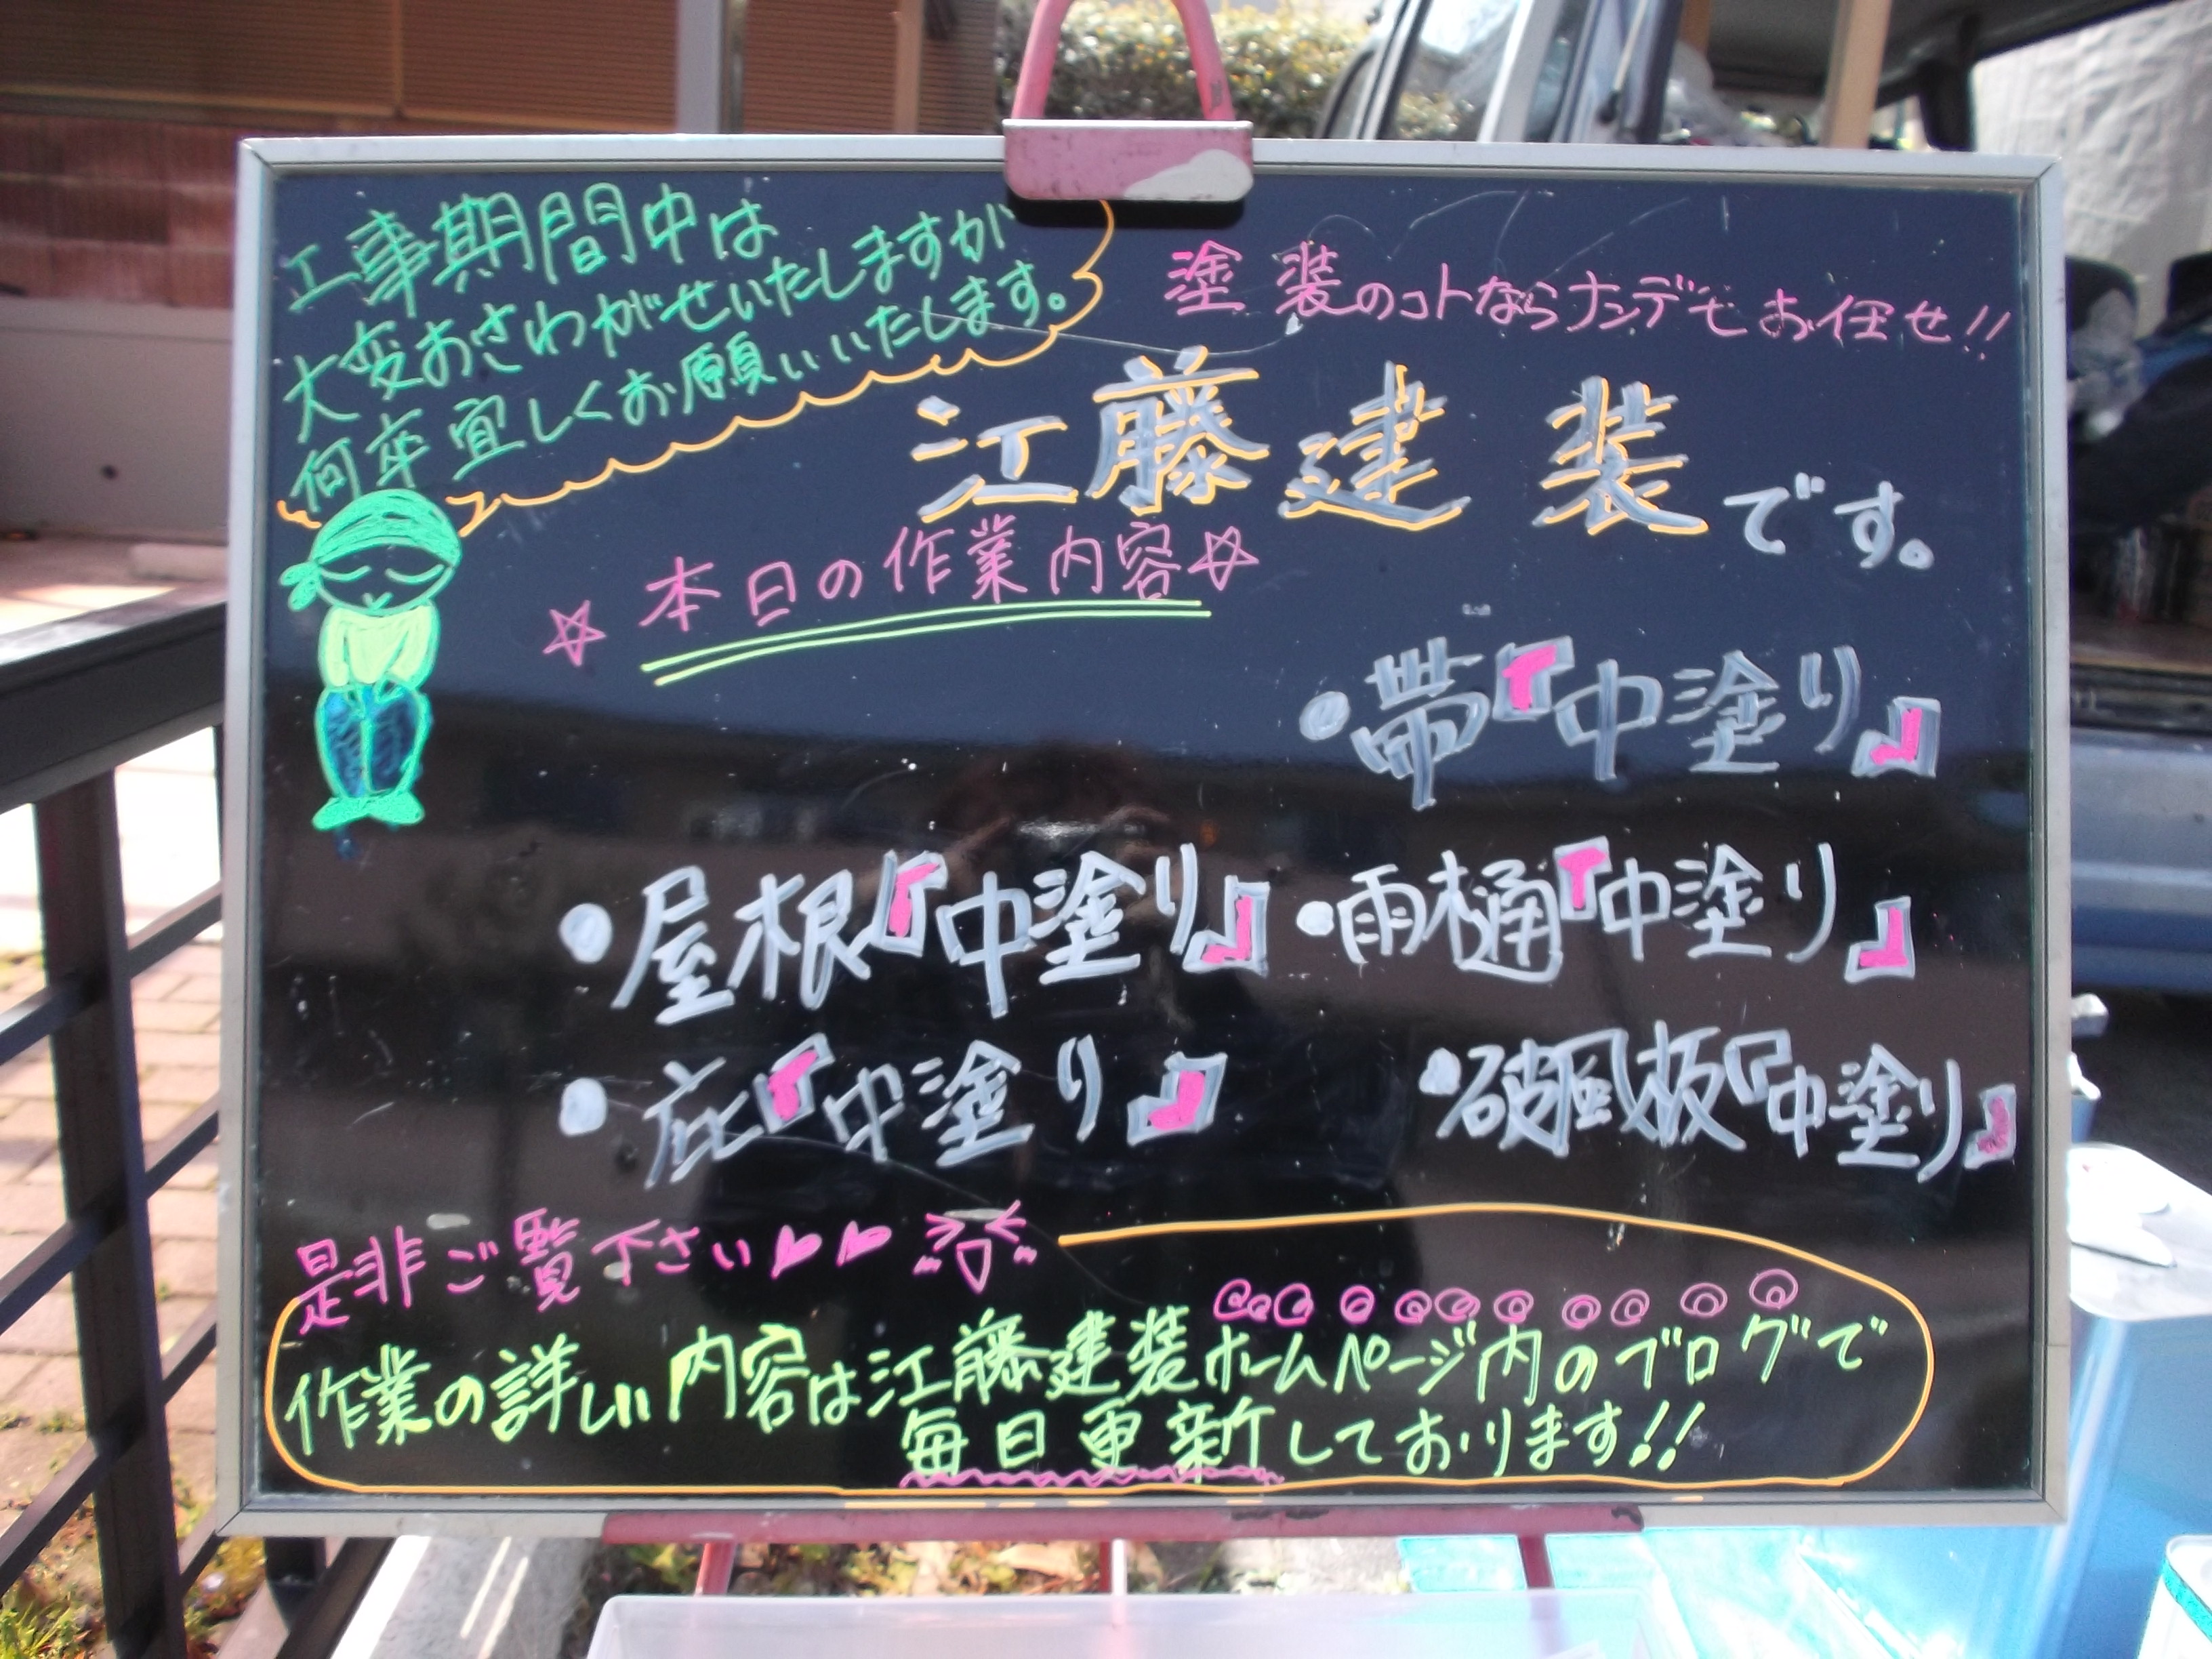 工事期間中は
大変おさわがせいたしますが
何卒宜しくお願いいたします。
塗装のコトならナンデもお任せ!!
江藤建装です。
☆本日の作業内容☆
●帯『中塗り』
●屋根『中塗り』
●雨樋『中塗り』
●庇『中塗り』
●破風板『中塗り』
是非ご覧下さい
作業の詳しい内容は江藤建装ホームページ内のブログで
毎日更新しております!!